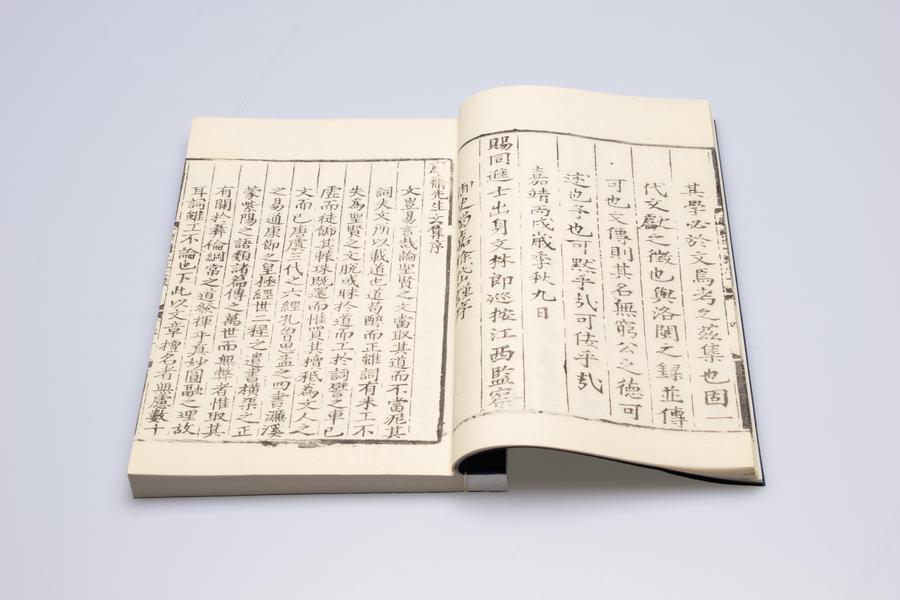 其學必於文焉考之茲集也固一
代文獻之徵也與洛關之錄並傳
可也文傳則其名無窮公之德可
述也予也可默乎哉可佞乎哉
嘉靖丙戌歲季秋九日
賜同進士出身文林郎巡按江西監察
先生文集序
文豈易言哉論聖賢之文當取其道而不當泥其
詞夫文所以載道也道苟醇而正雖詞有未工不
失為聖賢之文脫或昧於道而工於詞譬之車已
虛而徒飾其轅珠既還而惟買其櫝秪為文人之
文而已唐虞三代之六經孔曾思孟之四書濂溪
之易通康節之皇極經世二程之遺書橫渠之正
蒙紫陽之語類諸篇傳之萬世而無弊者惟取其
有關於彝倫綱常之道發揮乎真妙圓融之理故
耳詞雖工不論也下此以文章擅名者無慮數十